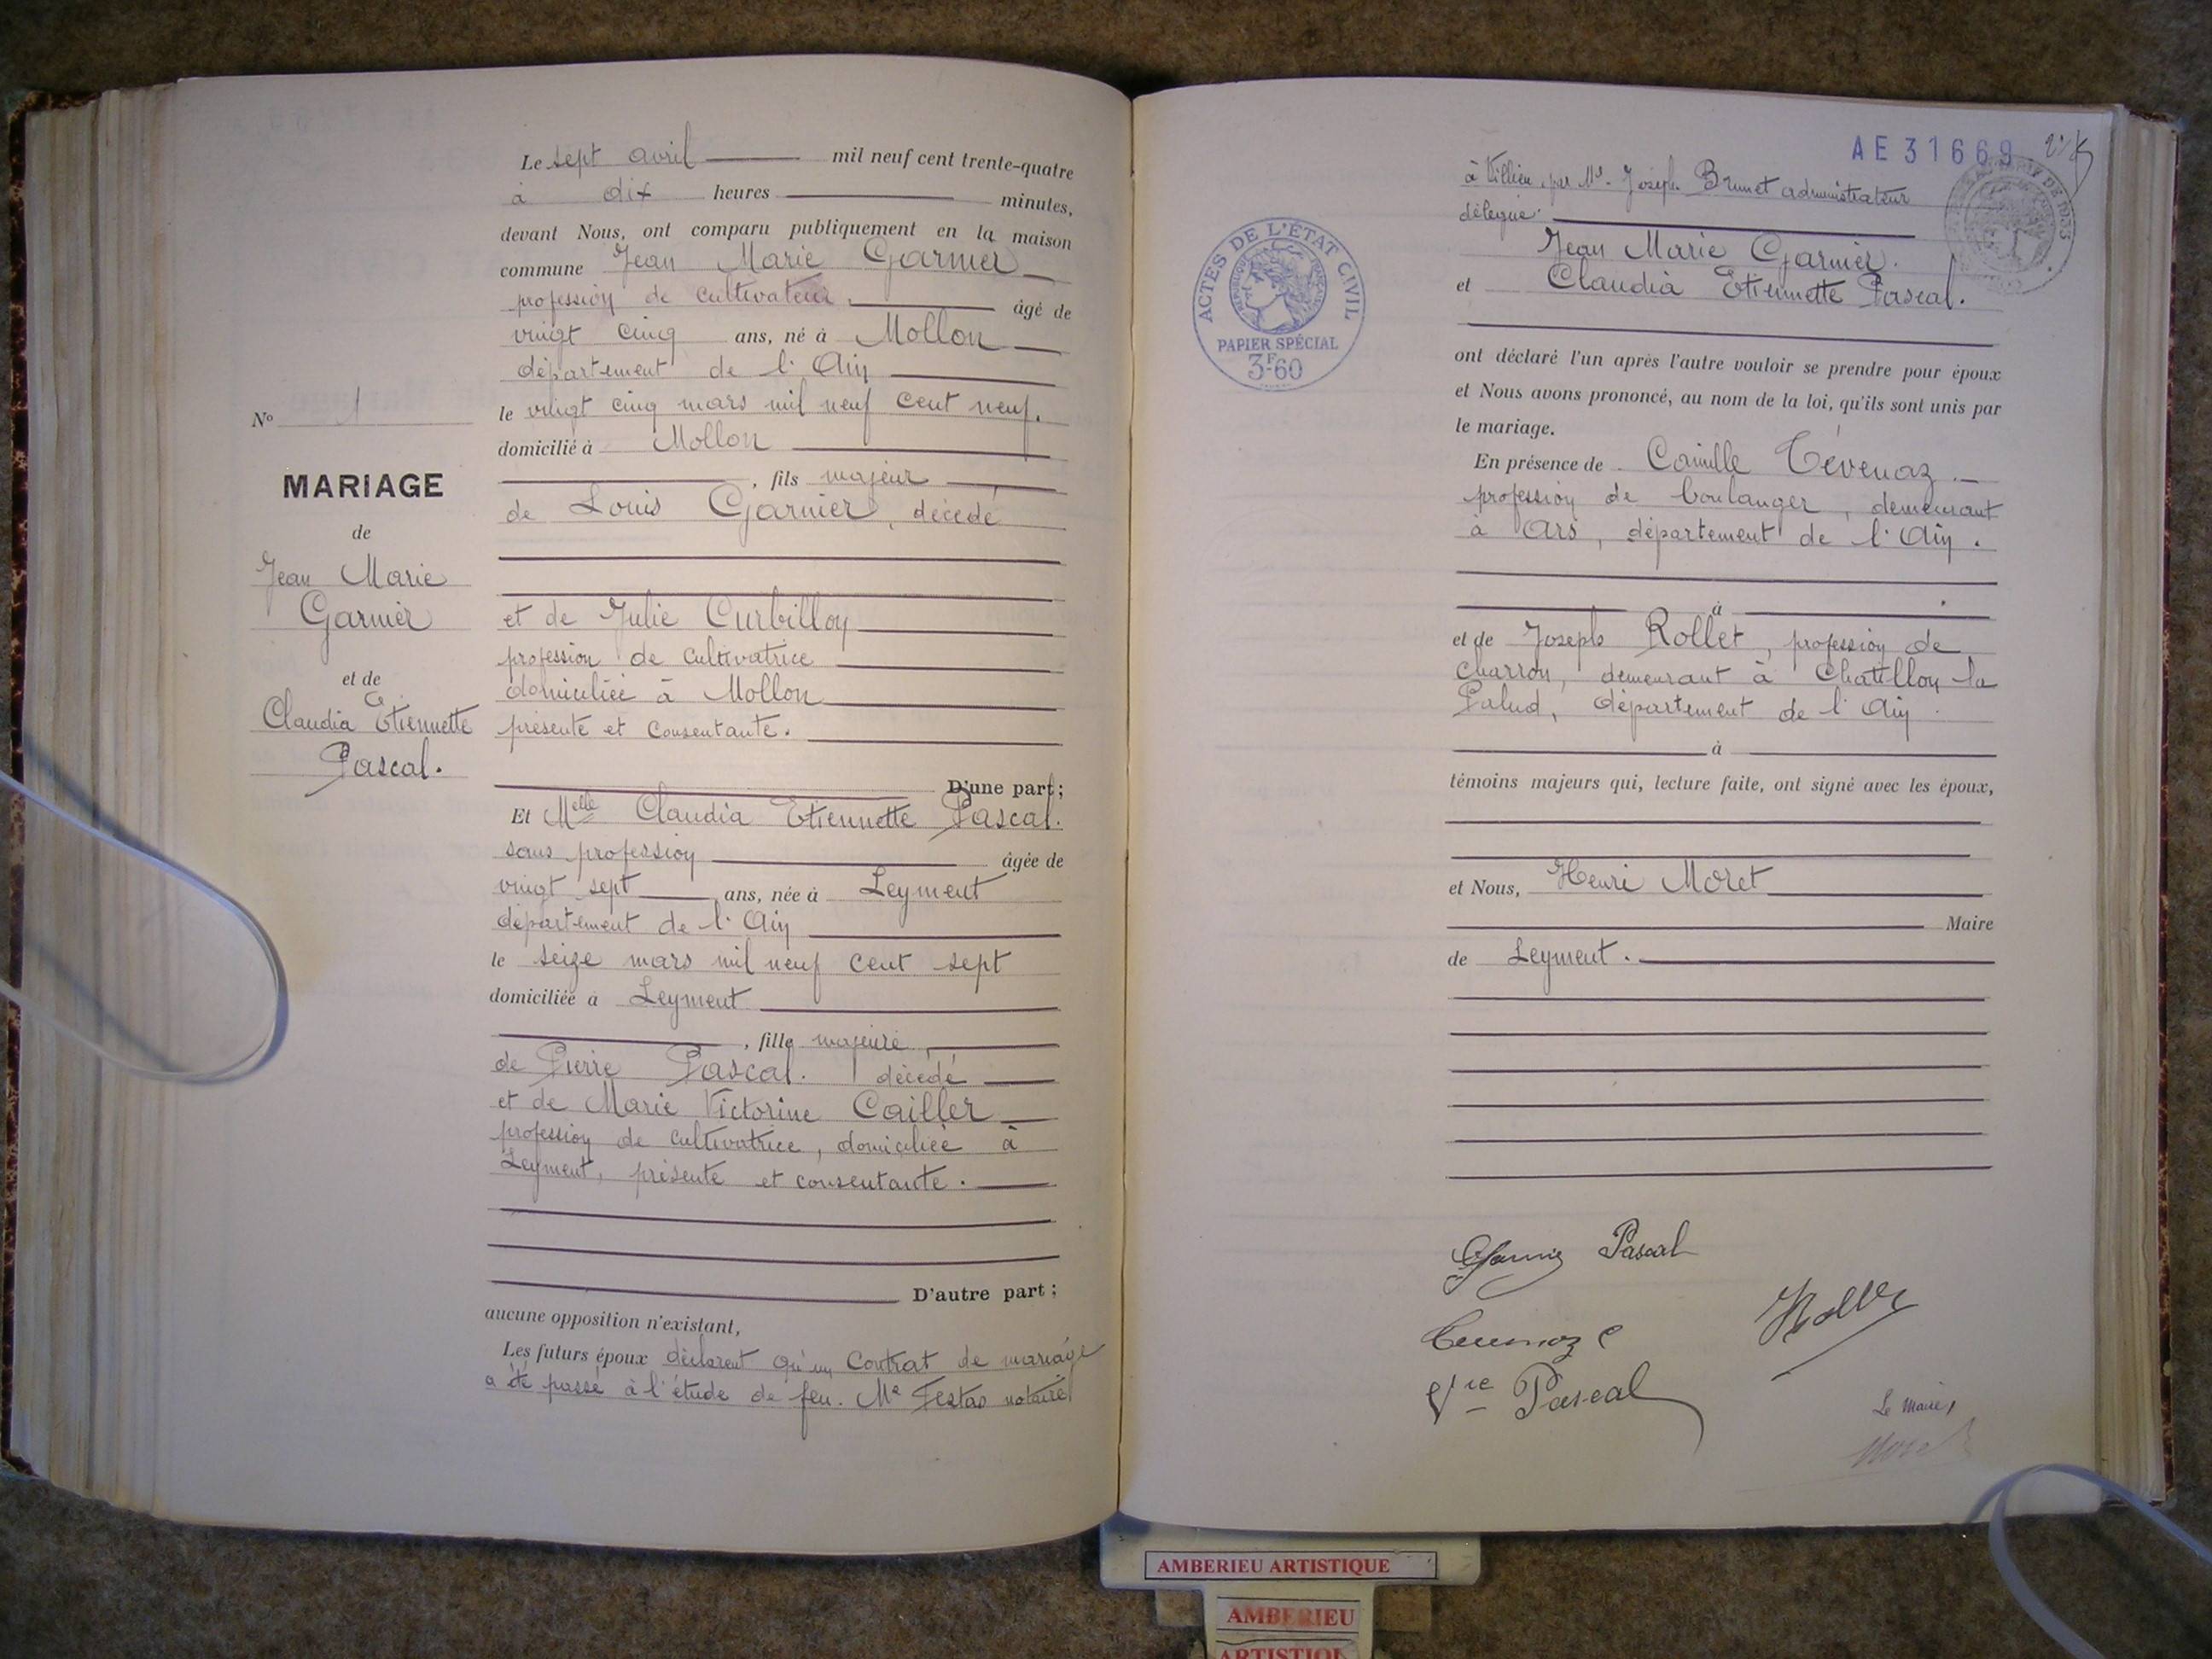 Le sept avril mil neuf cent trente-quatre
à dix heures minutes,
devant Nous, ont comparu publiquement en la maison
commune Jean Marie Garnier
profession de cultivateur, âgé de
vingt cinq ans, né à Mollon
département de l'Ain
le vingt cinq mars mil neuf cent neuf.
domicilié à Mollon
, fils majeur
de Louis Garnier, décédé
et de Julie Curbillon
profession de cultivatrice
domiciliée à Mollon
présente et consentante.
D'une part;
Et Melle Claudia Etiennette Pascal.
sans profession âgée de
vingt sept ans, née à Leyment
département de l'Ain
le seize mars mil neuf cent sept
domiciliée à Leyment
, fille majeure,
de Pierre Pascal. décédé
et de Marie Victorine Cailler
profession de cultivatrice, domiciliée à
Leyment, présente et consentante.
D'autre part;
aucune opposition n'existant,
Les futurs époux déclarent qu'un Contrat de mariage
a été passé à l'étude de feu. Me Festas notaire
No 1
MARIAGE
de
Jean Marie
Garnier
et de
Claudia Etiennette
Pascal.
AE 31669
à Villieu, par Mr. Joseph Brunet administrateur
délégué.
Jean Marie Garnier.
et Claudia Etiennette Pascal.
ACTES DE L'ÉTAT CIVIL
RÉPUBLIQUE FRANÇAISE
PAPIER SPÉCIAL
3F60
ont déclaré l'un après l'autre vouloir se prendre pour époux
et Nous avons prononcé, au nom de la loi, qu'ils sont unis par
le mariage.
En présence de Camille Tévenaz
profession de boulanger, demeurant
à Ars, département de l'Ain.
à
et de Joseph Rollet, profession de
charron, demeurant à Chatillon la
Palud, département de l'Ain
à
témoins majeurs qui, lecture faite, ont signé avec les époux,
et Nous, Henri Moret
Maire
de Leyment.
Garnier Pascal
Vve Pascal
Le Maire,
Moret
AMBERIEU ARTISTIQUE
AMBERIEU